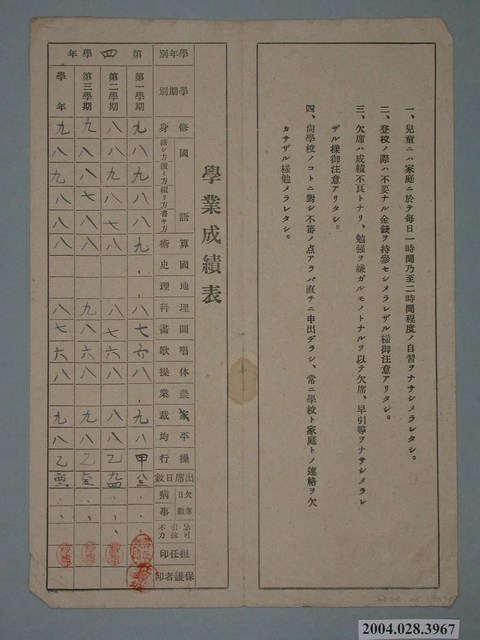 一、兒童ニハ家庭ニ於テ每日一時間乃至二時間程度ノ自習ヲナサシメラレタシ。
二、登校ノ際ハ不要ナル金錢ヲ持參セシメラレザル樣御注意アリタシ。
三、欠席ハ成績不良トナリ、勉强ヲ嫌ガルモノトナルヲ以テ欠席、早引等ヲナサシメラレ
ザル樣御注意アリタシ。
四、向學校ノコトニ對シ不審ノ点アラバ直チニ申出デラレ、常ニ學校ト家庭トノ連絡ヲ欠
カサザル樣勉メラレタシ。
學業成績表
學年別 第四學年
學期別 第一學期 第二學期 第三學期 學年
修身 九 八 九 九
國語
話シ方 八 八 八 八
讀ミ方 八 九 八 九
綴リ方 八 八 七 八
書キ方 八 七 八 八
算術 九 八 八 八
國史
地理
理科 八 八 九 八
圖畫 七 七 八 七
唱歌 六 六 六 六
体操 八 八 八 八
農業
家裁 九 八 九 九
平均 八 八 八 八
操行 甲 乙 乙 乙
出席日數
欠席日數 病 事
擔任印
保護者印
2004.028.3967